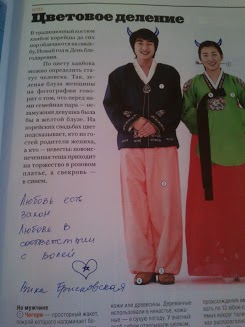 Цветовое деление
В традиционный костюм
ханбок корейцы до сих
пор облачаются на свадь-
бу, Новый год и День бла-
годарения.
По цвету ханбока
можно определить ста-
тус человека. Так, зе-
леная блуза женщины
на фотографии говор-
ит о том, что перед на-
ми семейная пара – не-
замужняя девушка была
бы в желтой блузе. На
корейских свадьбах цвет
подсказывает, кто из го-
стей родители жениха,
а кто – невесты: новоис-
печенная теща приходит
на торжество в розовом
платье, а свекровь –
в синем.
Любовь есть
закон
Любовь в
соответствии
с волей
На мужчине
1 Чогори – просторный жакет,
покрой которого напоминает
кожи или древесины. Деревянные
использовали в ненастье, кожа-
ные – в сухую погоду.